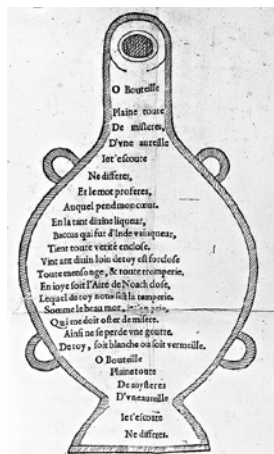 O Bouteille
Plaine toute
De misteres,
D'vne aureille
Ie t'escoute
Ne differes,
Et le mot proferes,
Auquel pend mon cœur.
En la tant diuine liqueur,
Baccus qui fut d'Inde vainqueur,
Tient toute verité enclose.
Vint ant diuin loin de toy est forclose
Toute mensonge, & toute tromperie.
En ioye soit l'Aire de Noach close,
Lequel de toy nous fist la temperie.
Somme le beau mot,
Qui me doit oster de misere.
Ainsi ne se perde vne goutte.
De toy, soit blanche ou soit vermeille.
O Bouteille
Plaine toute
De mysteres
D'vne aureille
Ie t'escoute
Ne differes.